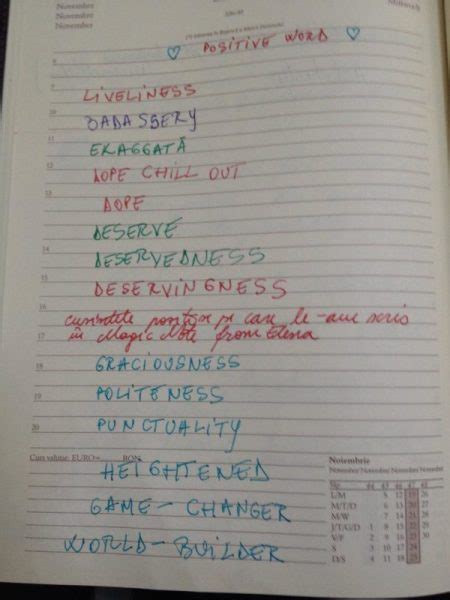 Noiembrie
Noiembrie
Noiembrie
Mittwoch
♡ POSITIVE WORD ♡
8
9
LIVELINESS
10 BADASSERY
11 EKAGGATĀ
12 DOPE CHILL OUT
13 DOPE
DESERVE
14 DESERVEDNESS
15 DESERVINGNESS
16
cuvintele pozitive pe care le-am scris
17 în Magic Note from Elena
18 GRACIOUSNESS
19 POLITENESS
20 PUNCTUALITY
Curs valutar: EURO= RON
HEIGHTENED
GAME-CHANGER
WORLD-BUILDER
Noiembrie
November/November/Novembre/November
44 45 46 47 48
L/M 5 12 19 26
M/T/D 6 13 20 27
M/W 7 14 21 28
J/T/G/D 1 8 15 22 29
V/F 2 9 16 23 30
S 3 10 17 24
D/S 4 11 18 25